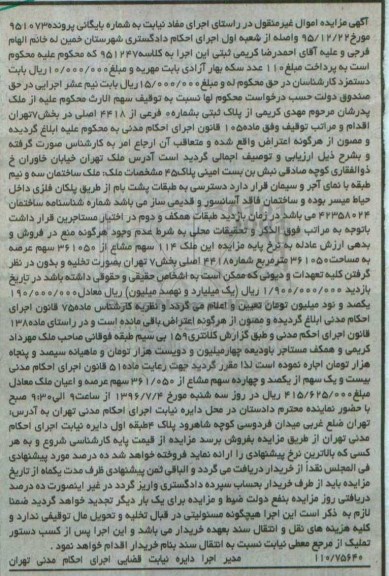 آگهی مزایده اموال غیرمنقول در راستای اجرای مفاد نیابت به شماره بایگانی پرونده ۹۵۱۰۷۳
مورخ ۹۵/۱۲/۲۲ واصله از شعبه اول اجرای احکام دادگستری شهرستان خمین له خانم الهام
فرجی و علیه آقای احمدرضا کریمی ثبتی این اجرا به کلاسه ۹۵۱۲۴۷ که محکوم علیه محکوم
است به پرداخت مبلغ ۱۱۰ عدد سکه بهار آزادی بابت مهریه و مبلغ ۱۰/۰۰۰/۰۰۰ ریال بابت
دستمزد کارشناسان در حق محکوم له و مبلغ ۱۵/۰۰۰/۰۰۰ ریال بابت نیم عشر اجرایی در حق
صندوق دولت حسب درخواست محکوم لها نسبت به توقیف سهم الارث محکوم علیه از ملک
پدرشان مرحوم مهدی کریمی از پلاک ثبتی بشماره ۰ فرعی از ۴۴۱۸ اصلی در بخش ۷ تهران
اقدام و مراتب توقیف وفق ماده ۱۰۵ قانون اجرای احکام مدنی به محکوم علیه ابلاغ گردیده
و مصون از هرگونه اعتراض واقع شده و متعاقب آن ارجاع امر به کارشناس صورت گرفته
و بشرح ذیل ارزیابی و توصیف اجمالی گردید است آدرس ملک تهران خیابان خاوران خ
ذوالفقاری کوچه صادقی نبش بن بست امینی پلاک ۴۵ مشخصات ملک: ملک ساختمان سه و نیم
طبقه با نمای آجر و سیمان قرار دارد دسترسی به طبقات پشت بام از طریق پلکان فلزی داخل
حیاط میسر بوده و ساختمان فاقد آسانسور و قدیمی ساز می باشد شماره شناسنامه ساختمان
۴۲۳۵۸۰۲۴ می باشد در زمان بازدید طبقات همکف و دوم در اختیار مستاجرین قرار داشت
باتوجه به مراتب فوق الذکر و تحقیقات محلی به شرط عدم وجود هرگونه منع در فروش و
بدهی ارزش عادله به نرخ پایه مزایده این ملک ۱۱۴ سهم مشاع از ۳۶۱۰۵۰ سهم عرصه
به مساحت ۳۶۱۰۵۰ مترمربع شماره ۴۴۱۸ اصلی بخش ۷ تهران بصورت تخلیه و بدون در نظر
گرفتن کلیه تعهدات و دیونی که ممکن است به اشخاص حقیقی و حقوقی داشته باشد در تاریخ
بازدید ۱/۹۰۰/۰۰۰/۰۰۰ ریال (یک میلیارد و نهصد میلیون) ریال معادل ۱۹۰/۰۰۰/۰۰۰
یکصد و نود میلیون تومان تعیین و اعلام می گردد و نظریه کارشناس ماده ۷۵ قانون اجرای
احکام مدنی ابلاغ گردیده و مصون از هرگونه اعتراض باقی مانده است و در راستای ماده ۱۳۸
قانون اجرای احکام مدنی و طبق گزارش کلانتری ۱۵۹ بی سیم طبقه فوقانی صاحب ملک مهرداد
کریمی و همکف مستاجر باودیعه چهارمیلیون و دویست هزار تومان و ماهیانه سیصد و پنجاه
هزار تومان اجاره نموده است لذا مقرر گردید جهت رعایت ماده ۵۱ قانون اجرای احکام مدنی
بیست و یک سهم از یکصد و چهارده سهم مشاع از ۳۶۱/۰۵۰ سهم عرصه و اعیان ملک معادل
مبلغ ۴۱۵/۶۲۵/۰۰۰ ریال در روز سه شنبه مورخ ۱۳۹۶/۷/۴ از ساعت ۹ الی ۹:۳۰ صبح
با حضور نماینده محترم دادستان در محل دایره نیابت اجرای احکام مدنی تهران به آدرس:
تهران ضلع غربی میدان فردوسی کوچه شاهرود پلاک ۴ طبقه اول دایره نیابت اجرای احکام
مدنی تهران از طریق مزایده بفروش برسد مزایده از قیمت پایه کارشناسی شروع و به هر
کسی که بالاترین نرخ پیشنهادی را ارائه نماید فروخته خواهد شد ده درصد مورد پیشنهادی
فی المجلس نقدا از خریدار دریافت می گردد و الباقی ثمن پیشنهادی ظرف مدت یکماه از تاریخ
مزایده باید از طرف خریدار بحساب سپرده دادگستری واریز گردد در غیر اینصورت ده درصد
دریافتی روز مزایده بنفع دولت ضبط و مزایده برای یک بار دیگر تجدید خواهد گردید ضمنا
لازم به ذکر است این اجرا هیچگونه مسئولیتی در قبال تخلیه و تحویل مال توقیفی ندارد و
کلیه هزینه های نقل و انتقال سند بعهده خریدار می باشد و این اجرا پس از کسب دستور
تملیک از مرجع معطی نیابت نسبت به انتقال سند بنام خریدار اقدام خواهد نمود .
۱۱۰/۷۵۶۴۰ مدیر اجرا دایره نیابت قضایی اجرای احکام مدنی تهران